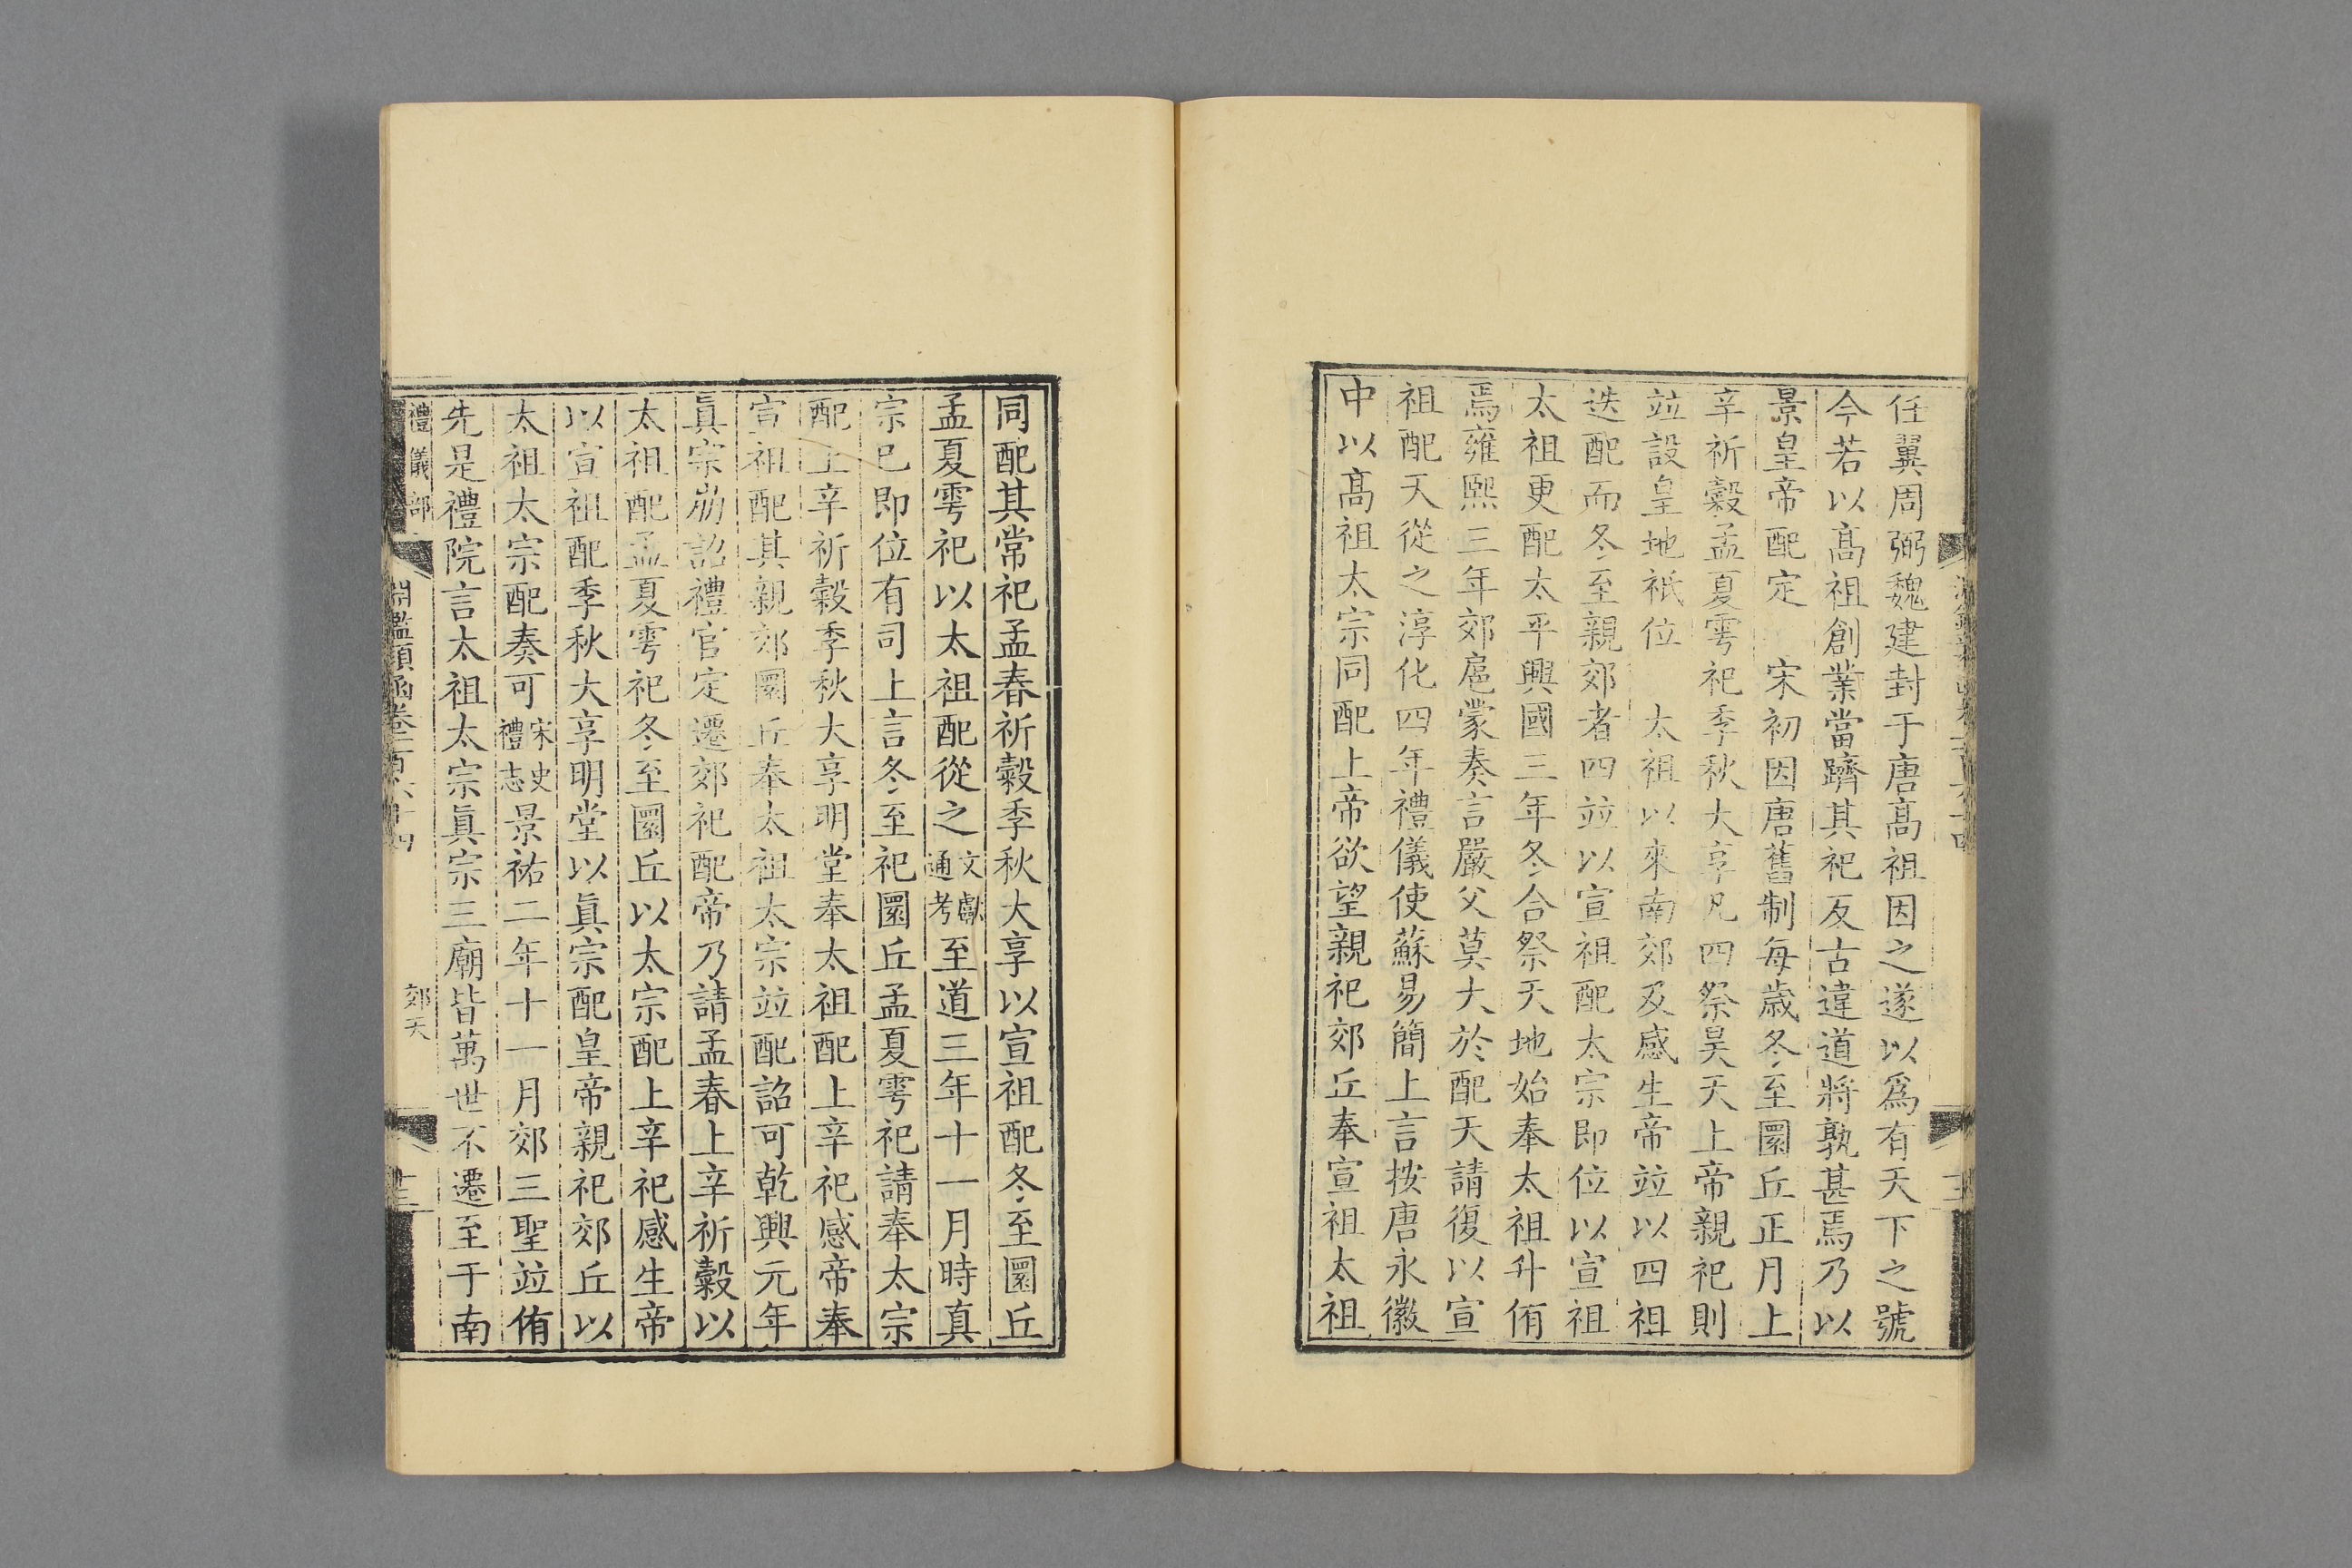 任翼周弼魏建封于唐髙祖因之遂以爲有天下之號
今若以髙祖創業當躋其祀反古違道將孰甚焉乃以
景皇帝配定　宋初因唐舊制每歳冬至圜丘正月上
辛祈穀孟夏雩祀季秋大享凡四祭昊天上帝親祀則
竝設皇地祇位　太祖以來南郊及感生帝竝以四祖
迭配而冬至親郊者四竝以宣祖配太宗即位以宣祖
太祖更配太平興國三年冬合祭天地始奉太祖升侑
焉雍熙三年郊扈蒙奏言嚴父莫大於配天請復以宣
祖配天從之淳化四年禮儀使蘇易簡上言按唐永徽
中以髙祖太宗同配上帝欲望親祀郊丘奉宣祖太祖
同配其常祀孟春祈穀季秋大享以宣祖配冬至圜丘
孟夏雩祀以太祖配從之文獻通考至道三年十一月時真
宗已即位有司上言冬至祀圜丘孟夏雩祀請奉太宗
配上辛祈穀季秋大享明堂奉太祖配上辛祀感帝奉
宣祖配其親郊圜丘奉太祖太宗竝配詔可乾興元年
眞宗崩詔禮官定遷郊祀配帝乃請孟春上辛祈穀以
太祖配孟夏雩祀冬至圜丘以太宗配上辛祀感生帝
以宣祖配季秋大享明堂以眞宗配皇帝親祀郊丘以
太祖太宗配奏可宋史禮志景祐二年十一月郊三聖竝侑
先是禮院言太祖太宗眞宗三廟皆萬世不遷至于南
禮儀部
淵鑑類函卷一百六十四
郊天